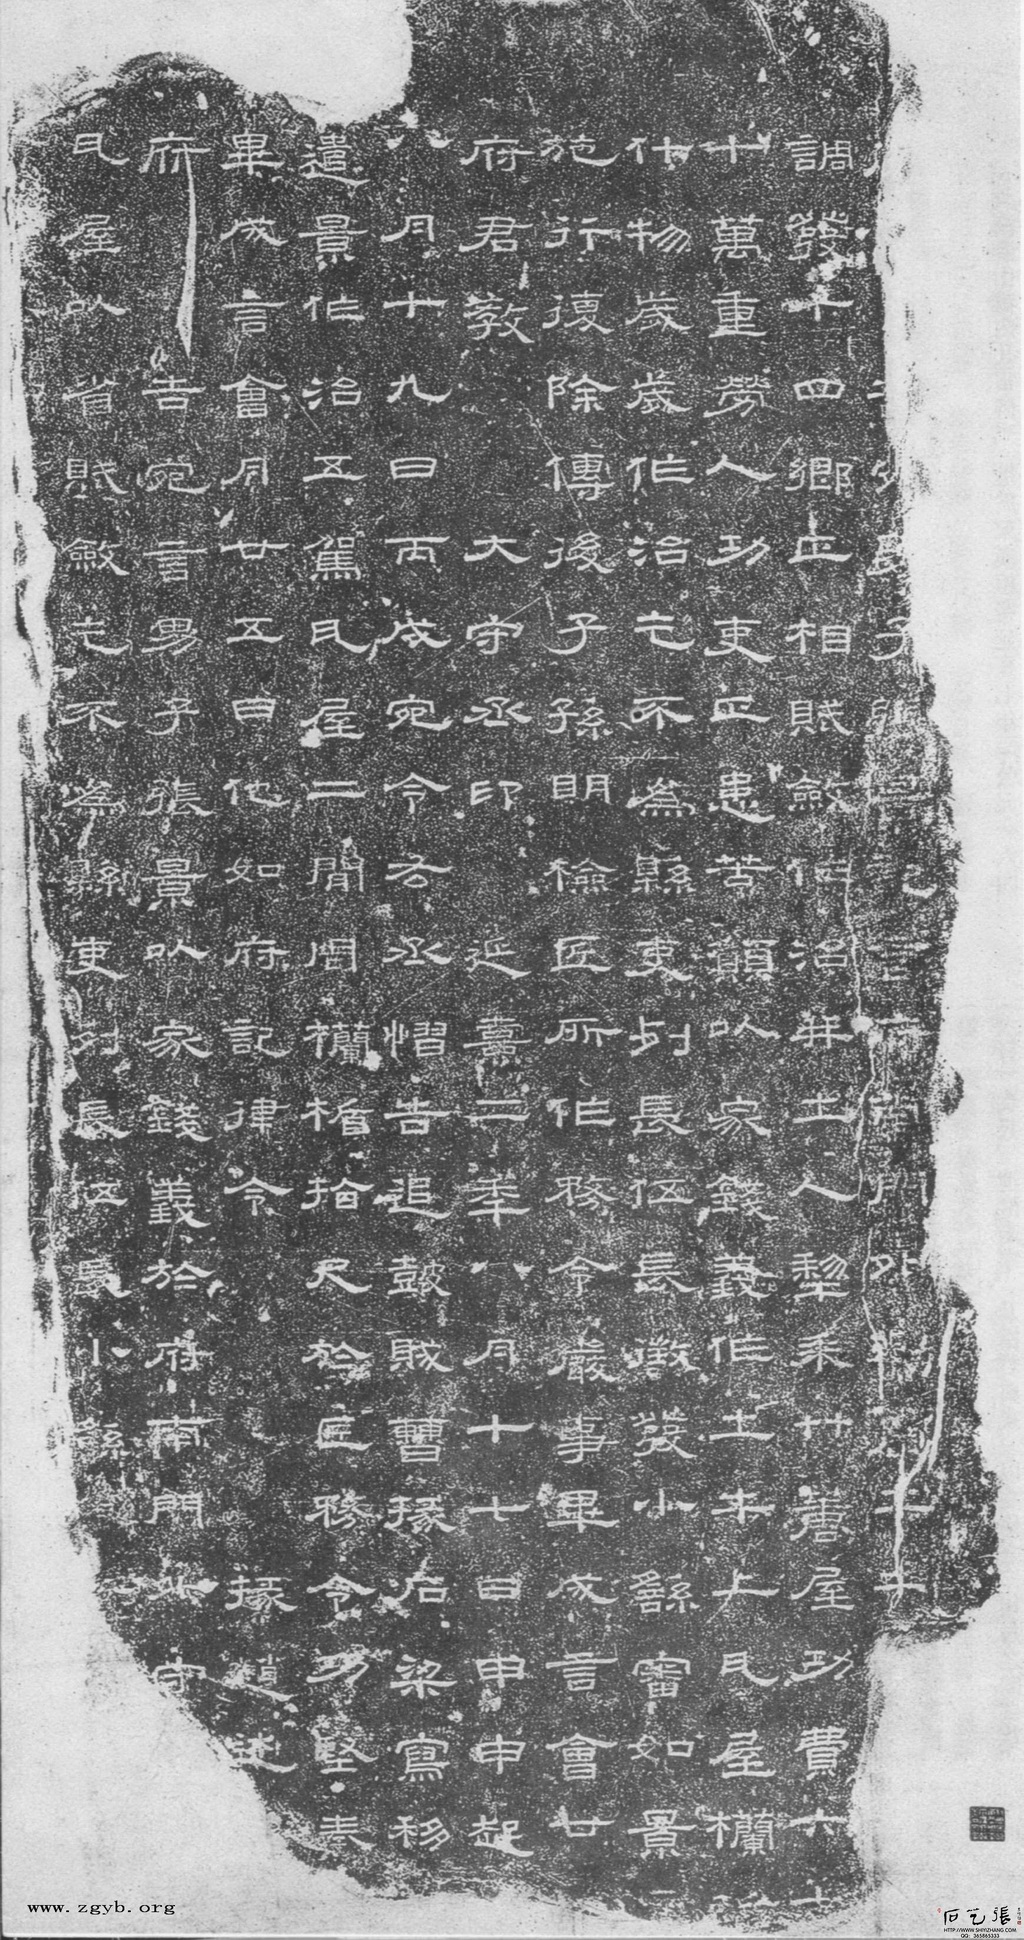 子張景記言府南門外勸農土牛
調發十四鄉正相賦斂作治并土人犁耒艹蓎屋功費六十
十萬重勞人功吏正患苦願以家錢義作土牛上瓦屋欄楯
什物歲歲作治乞不為縣吏列長伍長徵發小繇審如景言
施行復除傳後子孫明檢匠所作務令嚴事畢成言會廿
府君教 大守丞印 延熹二年八月十七日甲申起
八月十九日丙戌宛令右丞慴告追鼓賊曹掾石梁寫移
遣景作治五駕瓦屋二間周欄楯拾尺於匠務令功堅奉
畢成言會月廿五日他如府記律令 掾趙述
府 告宛言男子張景以家錢義於府南門外守
瓦屋以省賦斂乞不為縣吏列長伍長小繇
www.zgyb.org
石艺張
HTTP://WWW.SHIYIZHANG.COM
QQ: 365865333